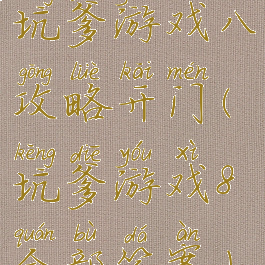 坑爹游戏八
gōng lüè kāi mén
攻略开门(
kēng diē yóu xì
坑爹游戏8
quán bù dá àn
全部答案)